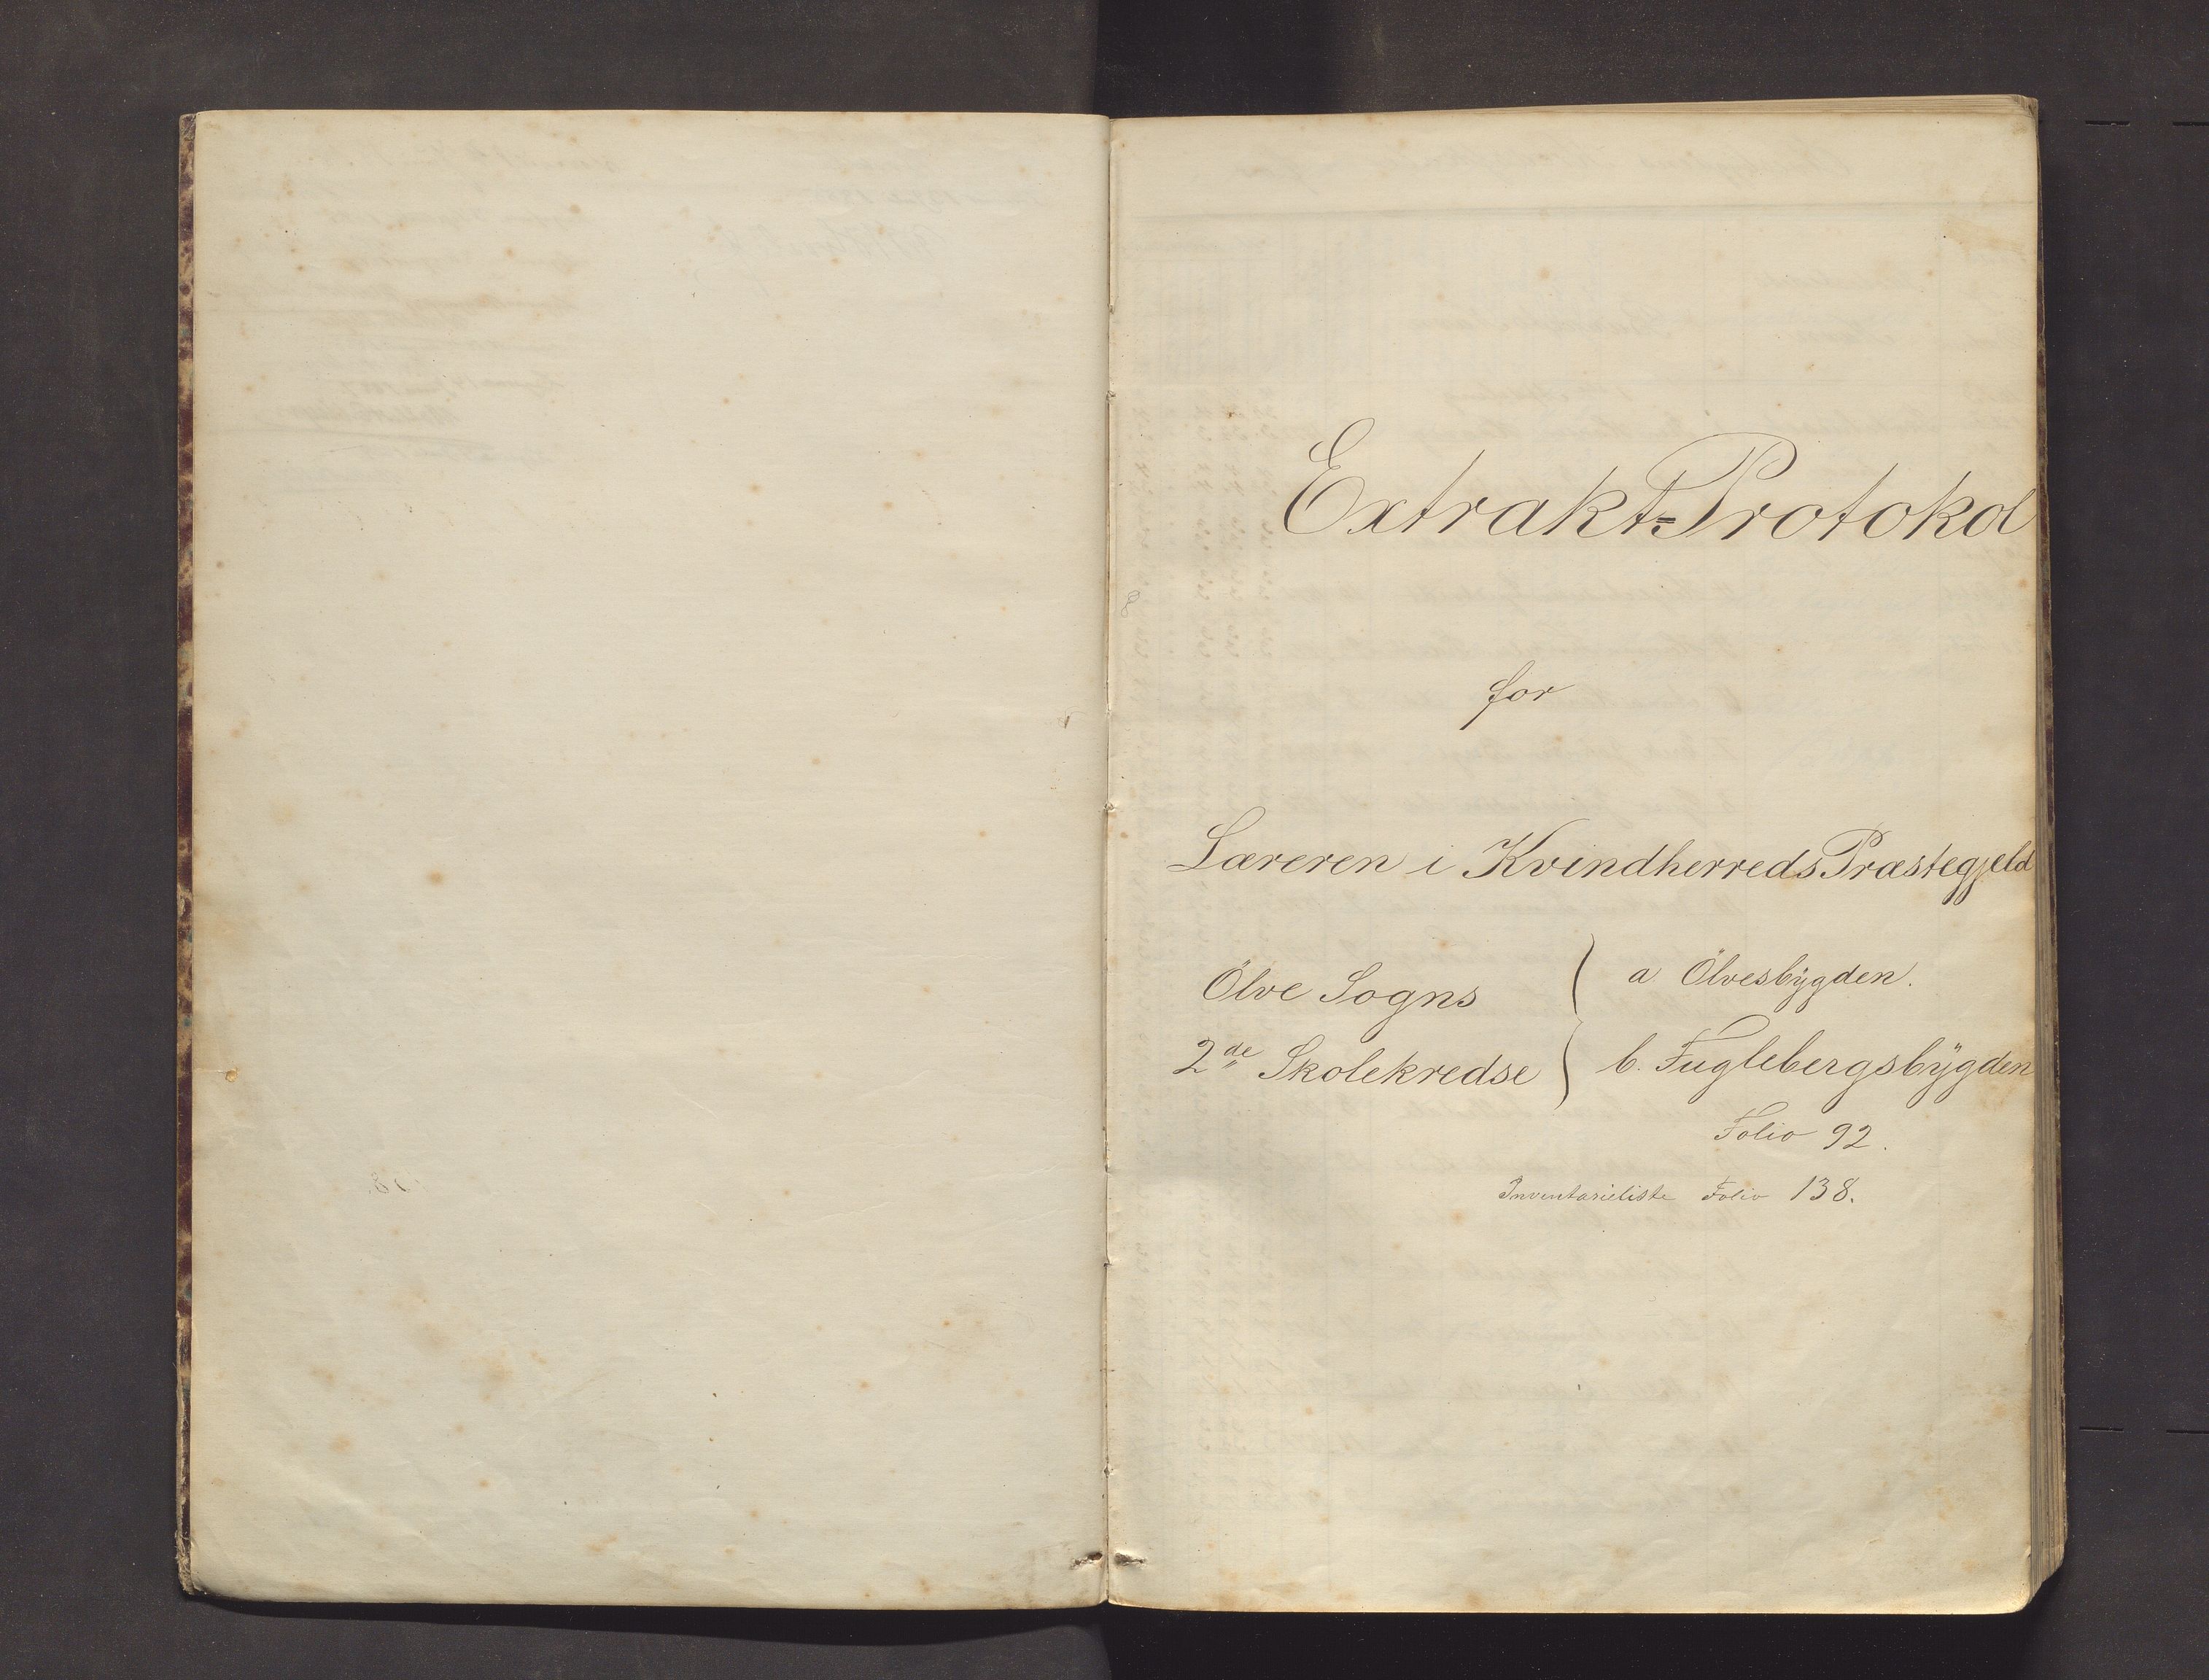 Extrakt=Protokol
for
Læreren i Kvindherreds Præstegjeld
Ölve Sogns
2de Skolekredse
a Ölvesbÿgden.
b. Fuglebergsbÿgden
Folio 92.
Inventarieliste Folio 138.